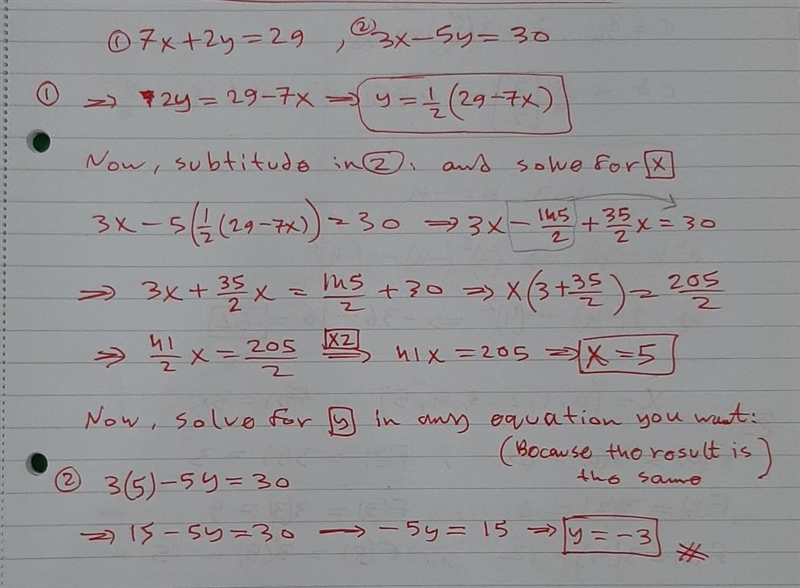 ① 7x+2y=29 , ② 3x-5y=30
① ⇒ 2y=29-7x ⇒ y=1/2(29-7x)
Now, subtitude in ②. and solve for x
3x-5(1/2(29-7x))=30 ⇒ 3x-145/2+35/2x=30
⇒ 3x+35/2x=145/2+30 ⇒ x(3+35/2)=205/2
⇒ 41/2x=205/2 x2⇒ 41x=205 ⇒ x=5
Now, solve for y in any equation you want:
(Because the result is the same)
② 3(5)-5y=30
⇒ 15-5y=30 → -5y=15 ⇒ y=-3 #